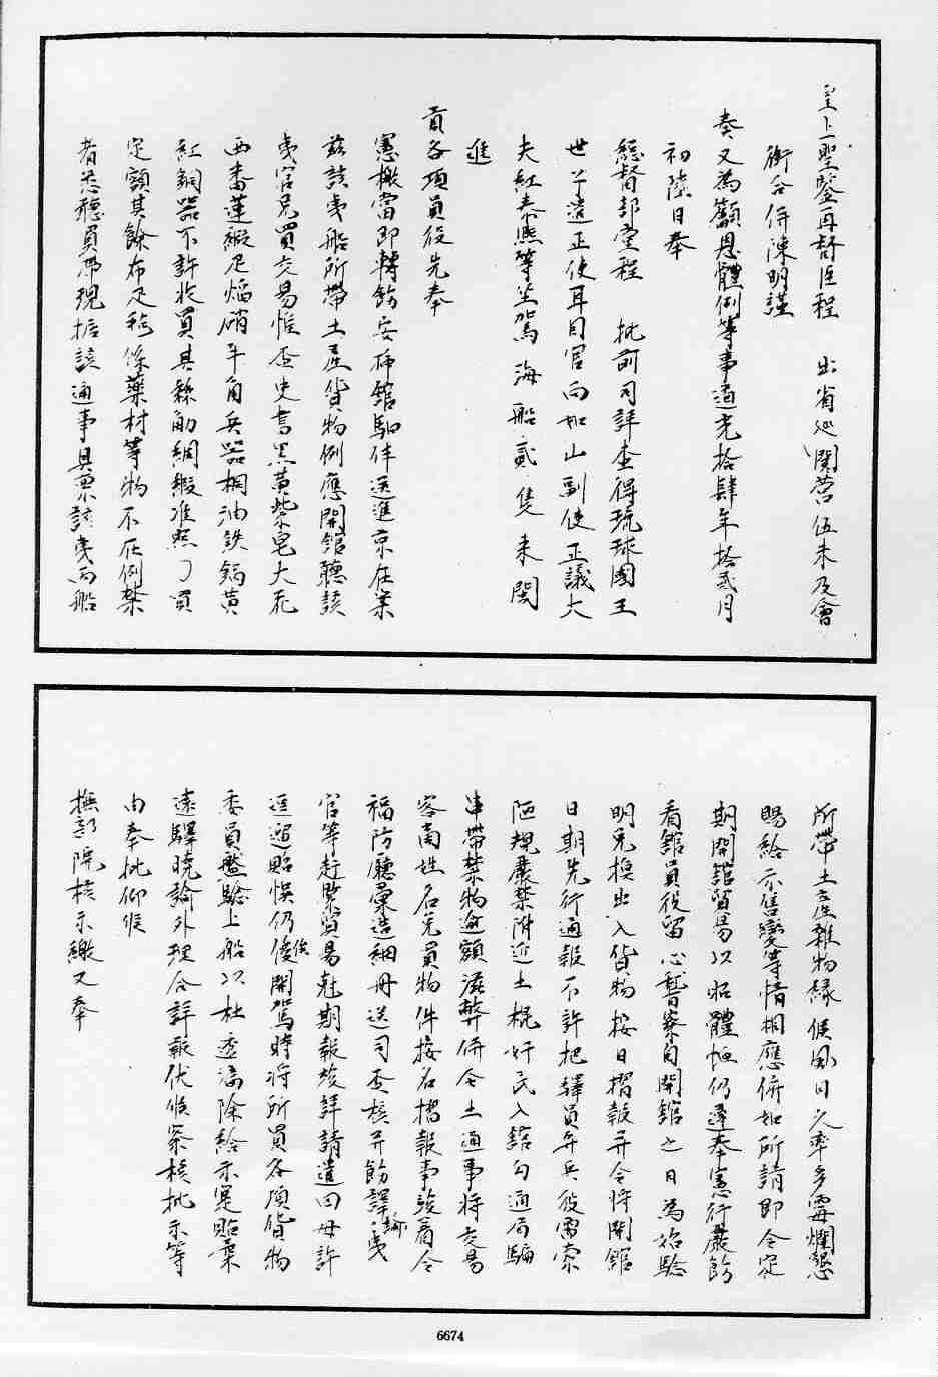 皇上聖鑒再舒臣程　出省巡閱營伍未及會
銜合併陳明謹
奏又為籲恩體例等事道光拾肆年拾貳月
初陸日奉
總督部堂程　批前司詳查得琉球國王
世子遣正使耳目官向如山副使正議大
夫紅泰熙等坐駕海船貳隻來閩
進
貢各項員役先奉
憲檄當即轉飭安插館馹伴送進京在案
茲該夷船所帶土產貨物例應開館聽該
夷官兄買交易惟查史書黑黃紫皂大花
西番蓮緞疋焰硝牛角兵器桐油鉄鍋黃
紅銅器不許收買其絲觔綢緞准照了買
定額其餘布疋穜條藥材等物不在例禁
者悉聽買帶現據該通事具稟該夷兩船
所帶土產雜物緣候風日久率多霉爛懇
賜給示售變等情相應併如所請即令定
期開館貿易以昭體恤仍遵奉憲行嚴飭
看館員役留心稽察自開館之日為始驗
明兄換出入貨物按日摺報并令將開館
日期先行通報不許把驛員弁兵役需索
陋規嚴禁附近土棍奸民入館勾通局騙
串帶禁物逾額滋弊併令土通事將交易
客商姓名兌買物件按名摺報事竣着令
福防廳彙造細冊送司查核并飭譯諭夷
官等赶緊貿易尅期報竣詳請遣回毋許
逗遛貽悞仍俟開駕時將所買各項貨物
委員盤驗上船以杜透漏除給示寔貼柔
遠驛曉諭外理合詳報伏候察核批示等
由奉批仰候
撫部院核示繳又奉
6674